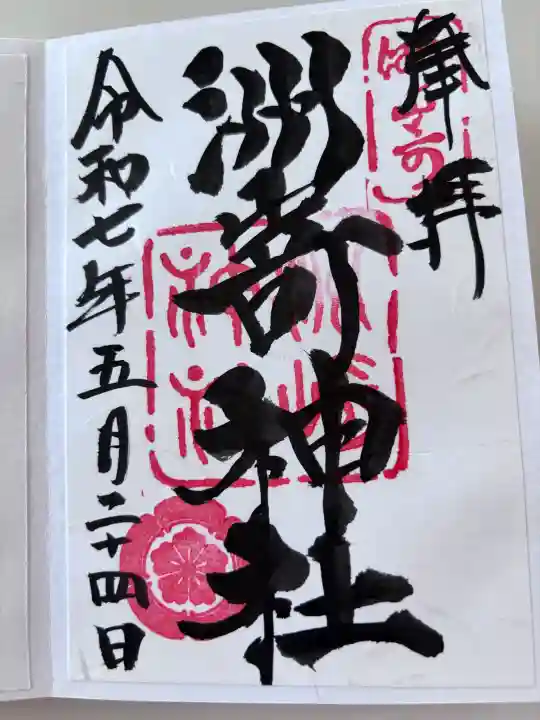 奉拝
洲嵜神社
令和七年五月二十四日